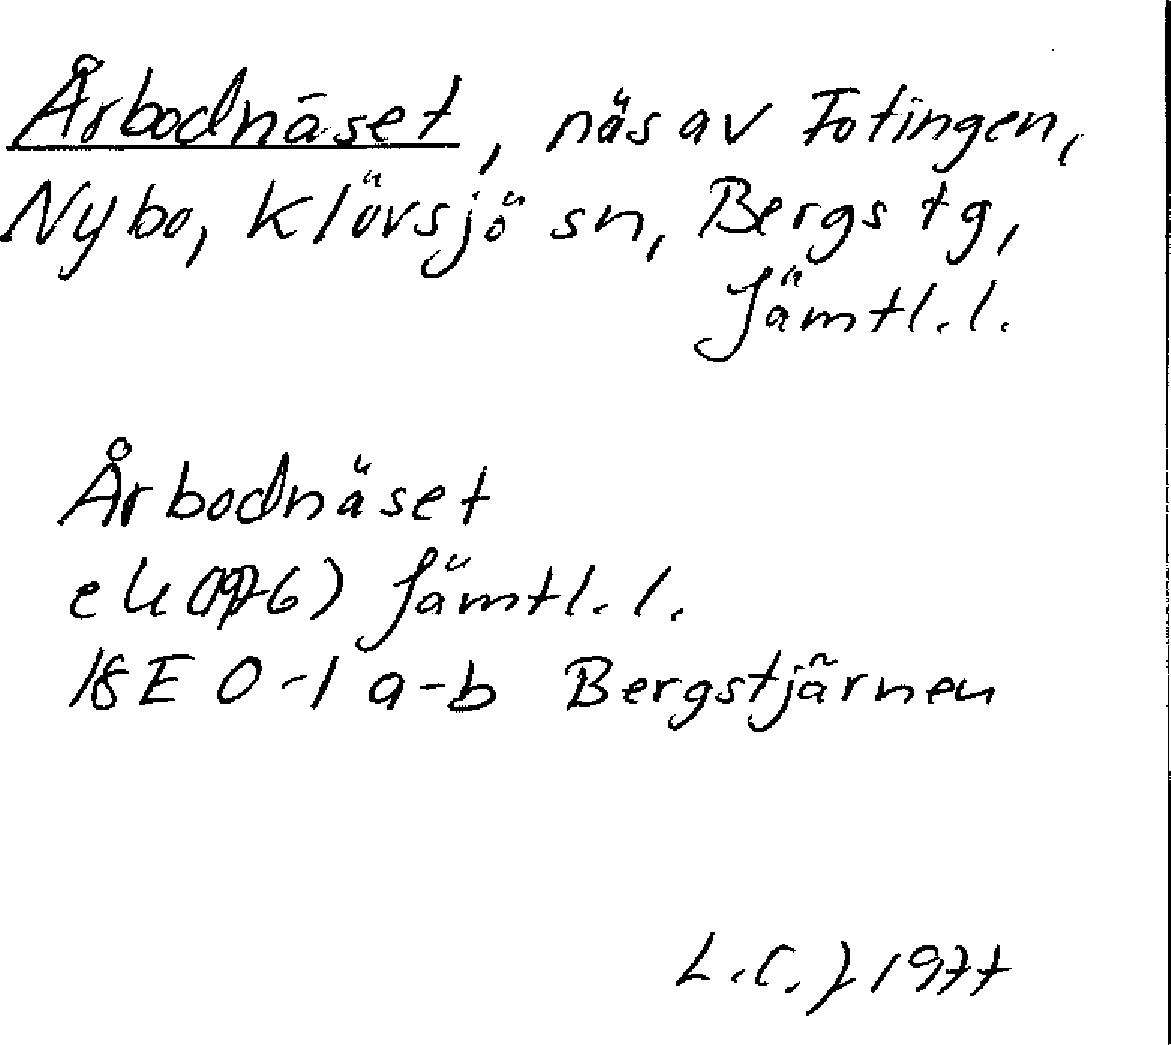 Årbodnäset, näs av Fotingen,
Nybo, Klövsjö sn, Bergs tg,
Jämtl. l.
Årbodnäset
ek (1976) Jämtl. l.
18E 0-1 a-b Bergstjärnen
L.C.J 1977